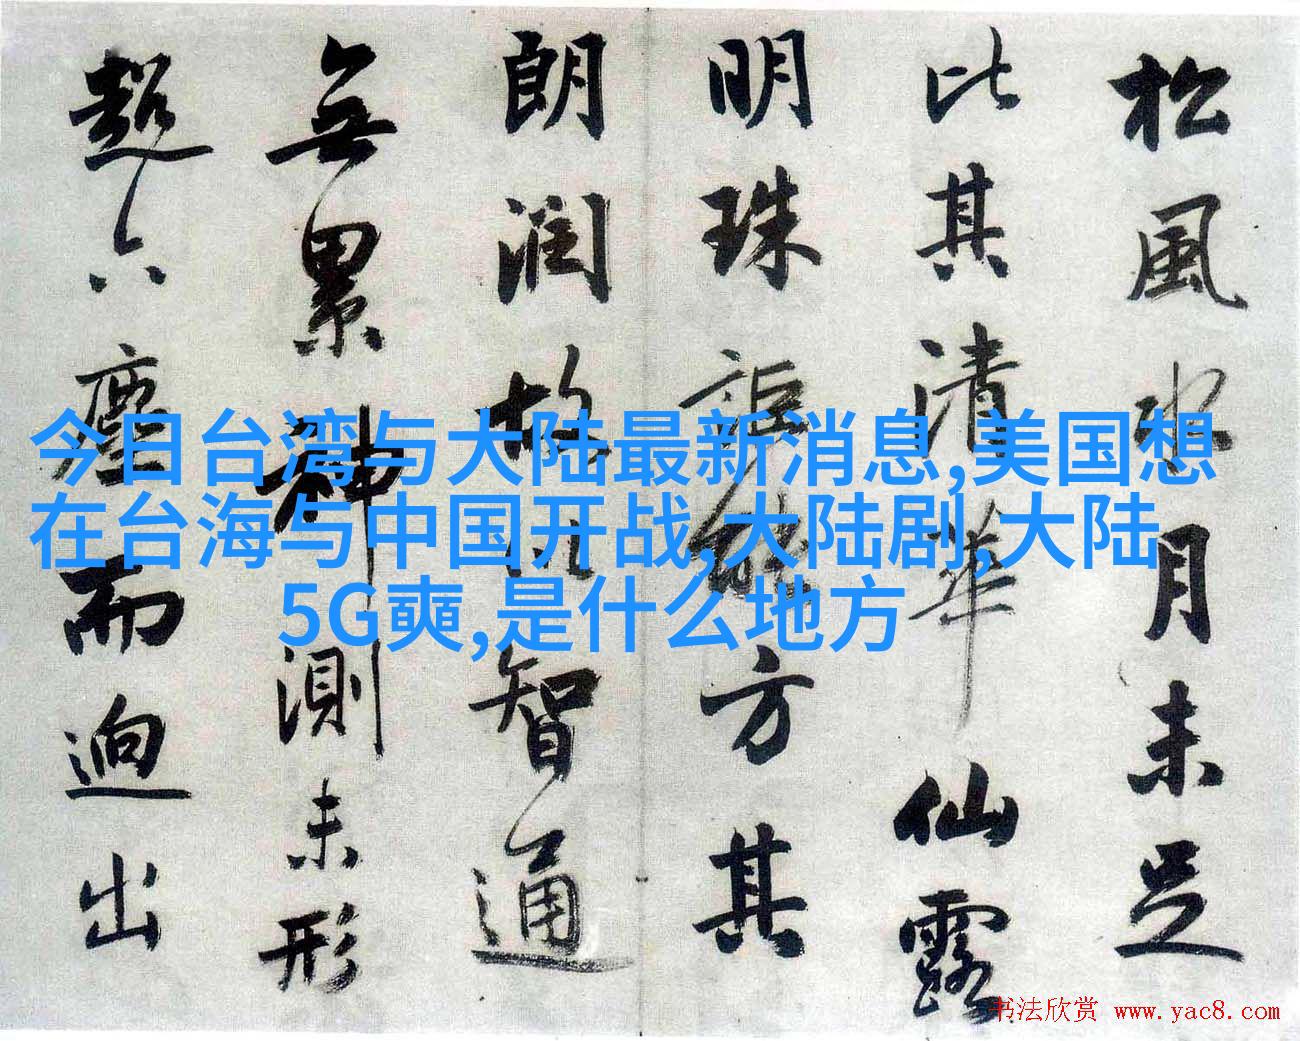 松風水月未足
比其清華仙露
明珠詎能方其
朗潤故以智通
無累神測未形
超六塵而迥出
今日台湾与大陆最新消息,美国想
在台海与中国开战,大陆剧,大陆
5G奭,是什么地方
书法欣赏 www.yac8.com